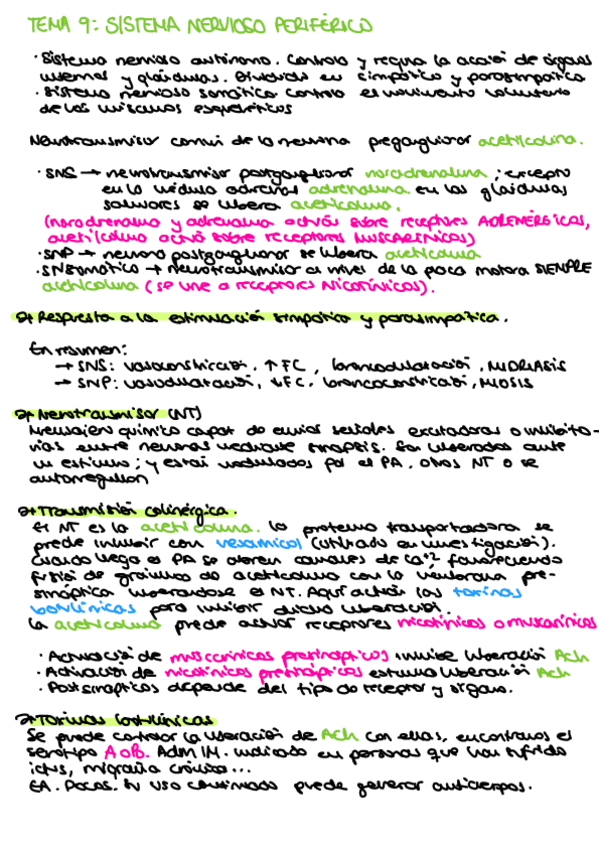 TEMA 9: SISTEMA NERVIOSO PERIFÉRICO
· Sistema nervioso autónomo. Controla y regula la acción de órganos
internos y glándulas. Dividido en simpático y parasimpático
· Sistema nervioso somático controla el movimiento voluntario
de los músculos esqueléticos
Neurotransmisor común de la neurona preganglionar acetilcolina.
· SNS → neurotransmisor postganglionar noradrenalina; excepto
en la médula adrenal adrenalina. en las glándulas
salivares se libera acetilcolina.
(noradrenalina y adrenalina actúan sobre receptores ADRENÉRGICOS,
acetilcolina actúa sobre receptores MUSCARÍNICOS)
· SNP → neurona postganglionar se libera acetilcolina
· SNSomático → neurotransmisor a nivel de la placa motora SIEMPRE
acetilcolina (se une a receptores NICOTÍNICOS).
Respuesta a la estimulación simpática y parasimpática.
En resumen:
→ SNS: vasoconstricción, ↑FC, broncodilatación, MIDRIASIS
→ SNP: vasodilatación, ↓FC, broncoconstricción, MIOSIS
Neurotransmisor (NT)
Mensajero químico capaz de enviar señales excitadoras o inhibito-
rias entre neuronas mediante sinapsis. Son liberados ante
un estímulo; y están modulados por el PA, otros NT o se
autorregulan
Transmisión colinérgica.
El NT es la acetilcolina. La proteína transportadora se
puede inhibir con vesamicol (utilizado en investigación).
Cuando llega el PA se abren canales de Ca+2, favoreciendo
fusión de gránulos de acetilcolina con la membrana pre-
sináptica liberándose el NT. Aquí actúan las toxinas
botulínicas para inhibir dicha liberación.
La acetilcolina puede activar receptores nicotínicos o muscarínicos
· Activación de muscarínicos presinápticos inhibe liberación Ach
· Activación de nicotínicos presinápticos estimula liberación Ach
· Postsinápticos depende del tipo de receptor y órgano.
Toxinas botulínicas
Se puede controlar la liberación de Ach con ellas, encontramos el
serotipo A o B. Adm IM. indicado en personas que han sufrido
ictus, migraña crónica...
EA. Pocos. Su uso continuado puede generar anticuerpos.